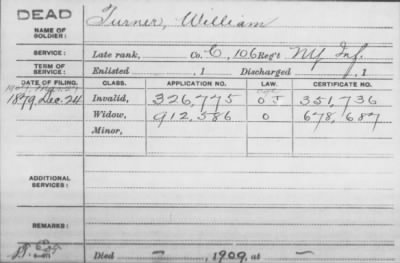 DEAD
NAME OF SOLDIER: Turner, William
SERVICE: Late rank, Co. C, 106 Reg't NY Inf.
TERM OF SERVICE: Enlisted , 1 Discharged , 1
DATE OF FILING. CLASS. APPLICATION NO. LAW. CERTIFICATE NO.
1879, Dec. 24 Invalid, 326,775 O J 351,736
Widow, 912,586 O 678,687
Minor,
ADDITIONAL SERVICES:
REMARKS:
Died — 1909, at —